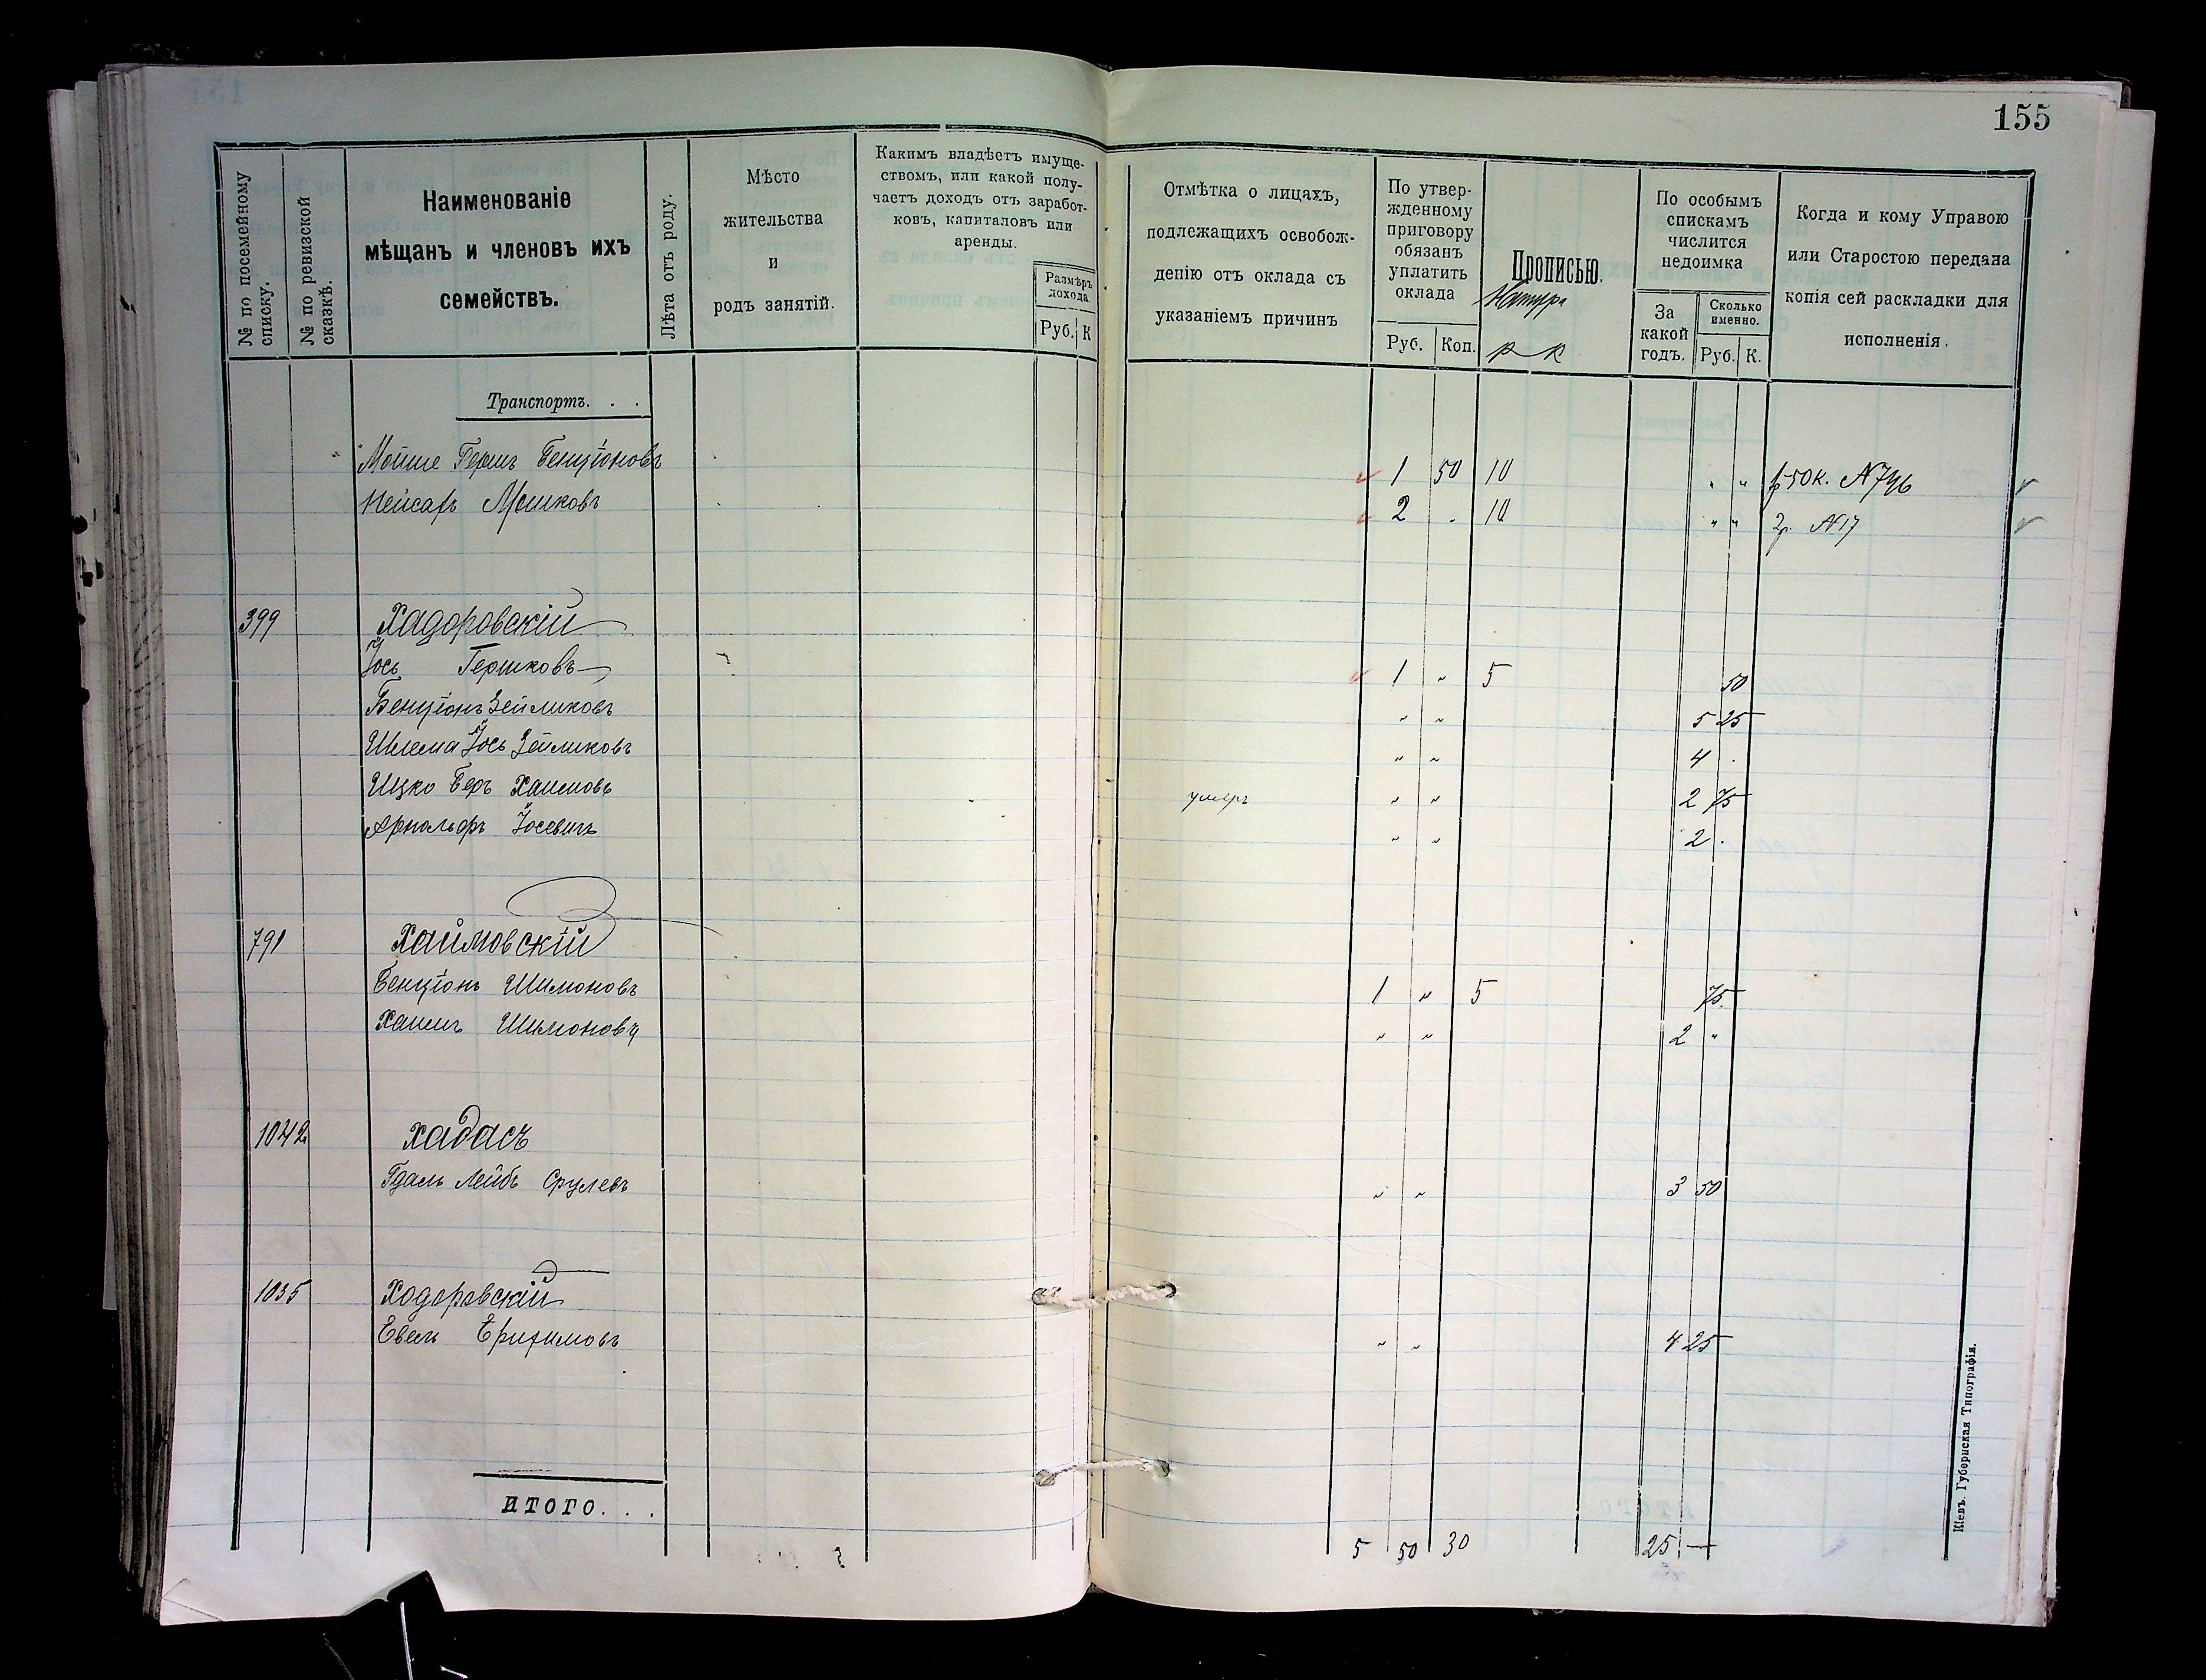 155
№ по посемейному списку.
№ по ревизской сказкѣ.
Наименованіе
мѣщанъ и членовъ ихъ
семействъ.
Лѣта отъ роду.
Мѣсто
жительства
и
родъ занятій.
Какимъ владѣетъ имуще-
ствомъ, или какой полу-
чаетъ доходъ отъ заработ-
ковъ, капиталовъ или
аренды.
Размѣръ
дохода.
Руб. К
Отмѣтка о лицахъ,
подлежащихъ освобож-
денію отъ оклада съ
указаніемъ причинъ
По утвер-
жденному
приговору
обязанъ
уплатить
оклада
Руб. Коп.
Прописью.
Натура
р к
По особымъ
спискамъ
числится
недоимка
За
какой
годъ.
Сколько
именно.
Руб. К.
Когда и кому Управою
или Старостою передана
копія сей раскладки для
исполненія.
Транспортъ. . .
Мойше Гершъ Бенціоновъ 1 50 10 " " 1р 50к. №
Мошковъ 2 . 10 " " 2р. № 17
399 Хадоровскій
Іось Гершковъ 1 " 5 50
Бенціонъ Зейликовъ " " 5 25
Шлема Іось Зейликовъ " " 4 .
Ицко Беръ Хаимовъ умеръ " " 2 75
Арнольфъ Іосевичъ " " 2 .
791 Хаймовскій
Бенціонъ Шимоновъ 1 " 5 75
Хаимъ Шимоновъ " " 2 "
1042 Хабасъ
Гдаль Лейбъ Срулевъ " " 3 50
1035 Ходоровскій
Евель " " 4 25
ИТОГО. . .
5 50 30 25 —
Кіевъ. Губернская Типографія.